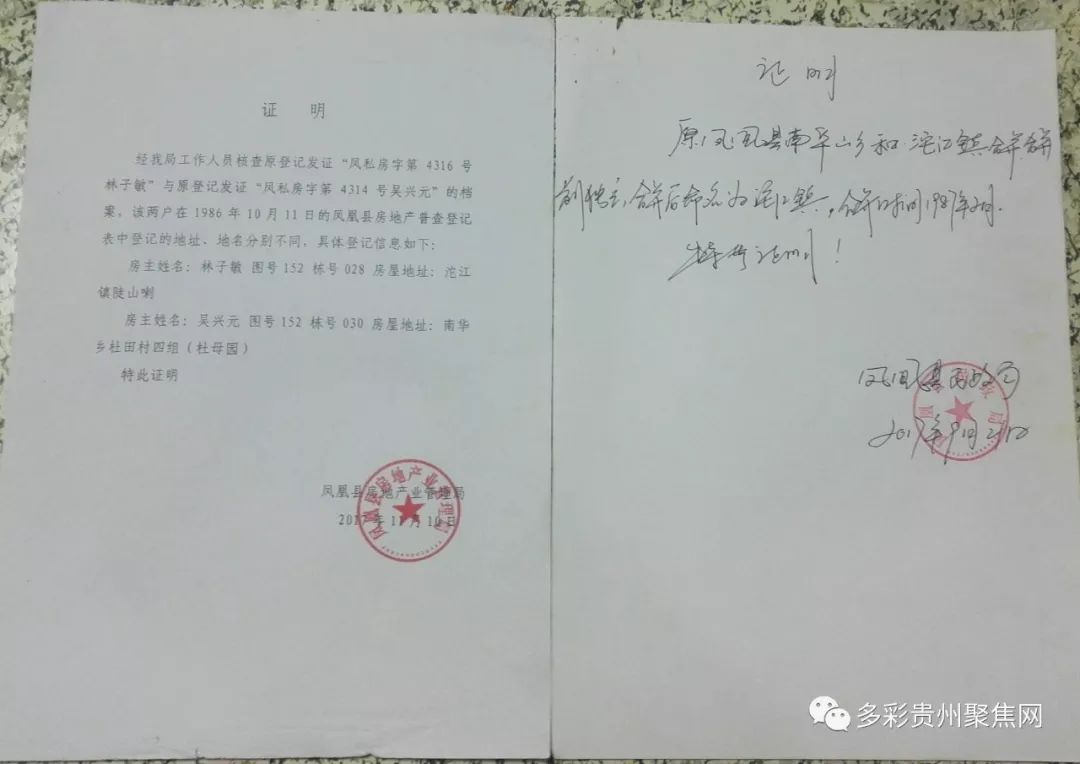 证 明
经我局工作人员核查原登记发证“凤私房字第 4316 号
林子敏”与原登记发证“凤私房字第 4314 号吴兴元”的档
案，该两户在 1986 年 10 月 11 日的凤凰县房地产普查登记
表中登记的地址、地名分别不同，具体登记信息如下：
房主姓名：林子敏 图号 152 栋号 028 房屋地址：沱江
镇陡山喇
房主姓名：吴兴元 图号 152 栋号 030 房屋地址：南华
乡杜田村四组（杜母园）
特此证明
凤凰县房地产业管理局
2017 年 11 月 10 日
凤凰县房地产业管理局
证明
原凤凰县南华山乡和沱江镇合并合并
前独立，合并后命名为沱江镇，合并时间1987年2月.
特此证明！
凤凰县民政局
2017年9月21日
多彩贵州聚焦网